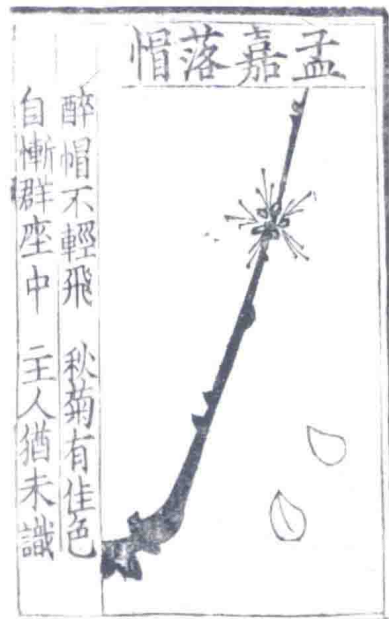 孟嘉落帽
醉帽不輕飛　秋菊有佳色
自慚群座中　主人猶未識